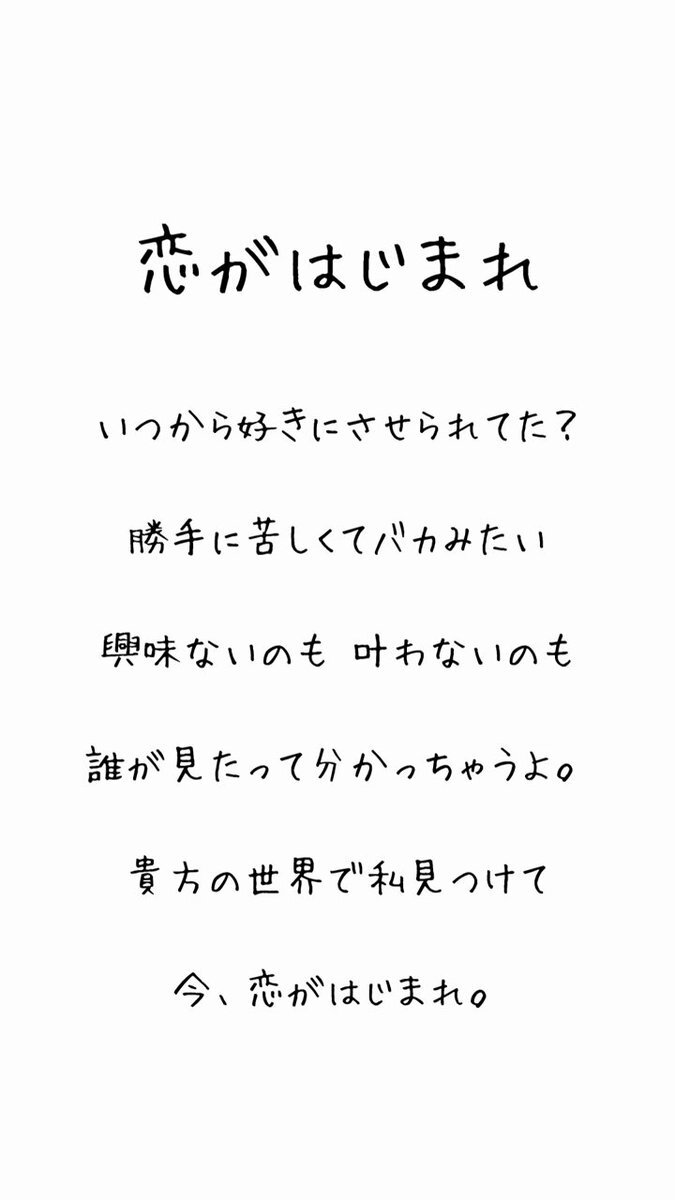 恋がはじまれ
いつから好きにさせられてた?
勝手に苦しくてバカみたい
興味ないのも 叶わないのも
誰が見たって分かっちゃうよ。
貴方の世界で私見つけて
今、恋がはじまれ。